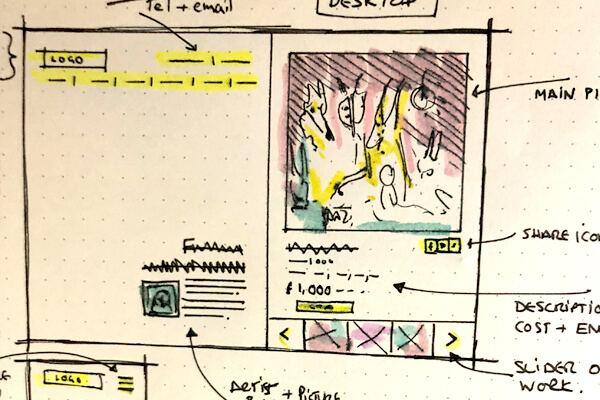 Tel + email
DESKTOP
LOGO
MAIN PI
SHARE ICO
£1,000
DESCRIPTIO
COST + EN
SLIDER O
WORK.
LOGO
Artist + Picture